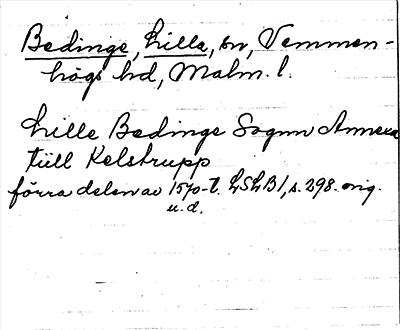 Bedinge, Lilla, sn, Vemmen-
högs hd, Malm. l.
Lille Bedinge Sognn Annexa
tiill Kelstrupp
förra delen av 1570-t. LSLB1, s. 298. orig.
u.d.